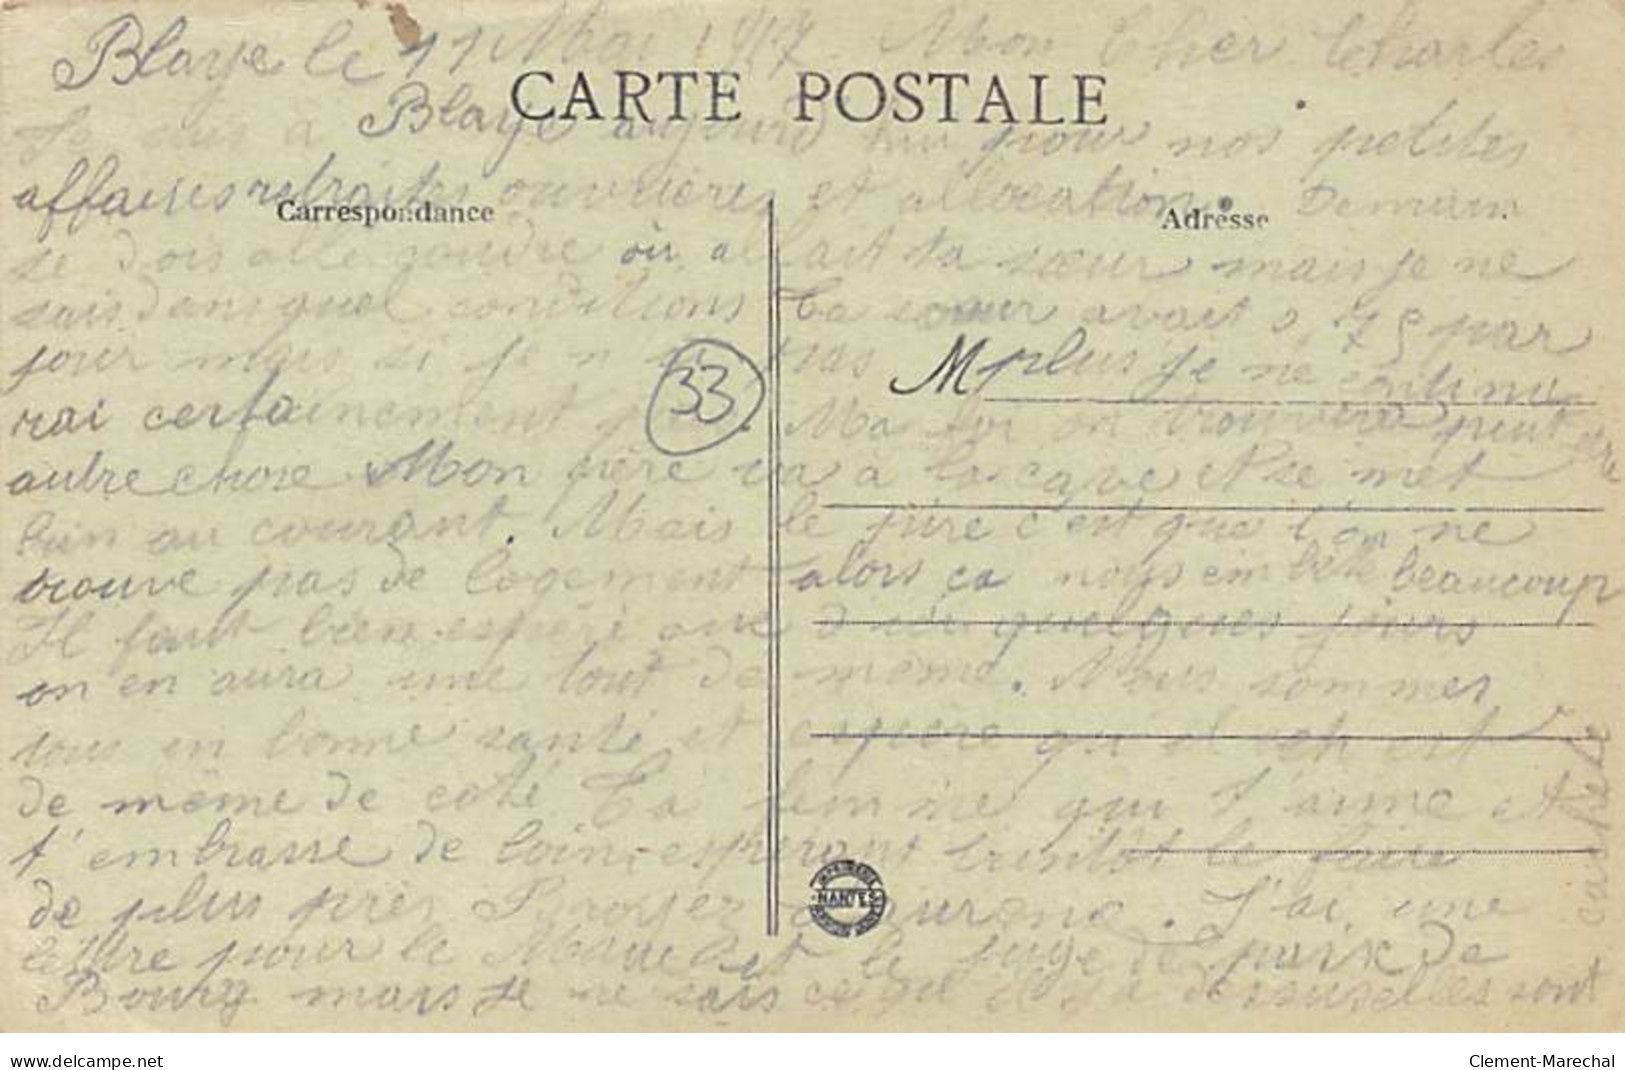 Blaye le 11 Mai 1917 Mon Cher Charles
CARTE POSTALE
Je suis à Blaye aujourd hui pour nos petites
affaires retraites ouvrières et allocation Demain
Carrespondance
Adresse
je dois alle où allait ta sœur mais je ne
sais dans quel conditions Ta sœur avait 2,75 par
jour mais si je n pas plus je ne continu
M
33
rai certainement pas. Ma foi on trouvera peut etre
autre chose Mon père va à la cave et se met
bien au courant. Mais le pire c'est que l'on ne
trouve pas de logement alors ca nous embête beaucoup
Il faut bien espéré que d'ici quelques jours
on en aura une tout de même. Nous sommes
tous en bonne santé et espère qu'il en est
de même de coté Ta femme qui t'aime et
t'embrasse de loin, espérant bientot le faire
de plus près. J'ai une
lettre pour le et le juge de paix de
Bourg mais je ne sais ce qu'il y a dessus elles sont
cachete
IMPRIMERIE NANTES
delcampe.net
Clement-Marechal